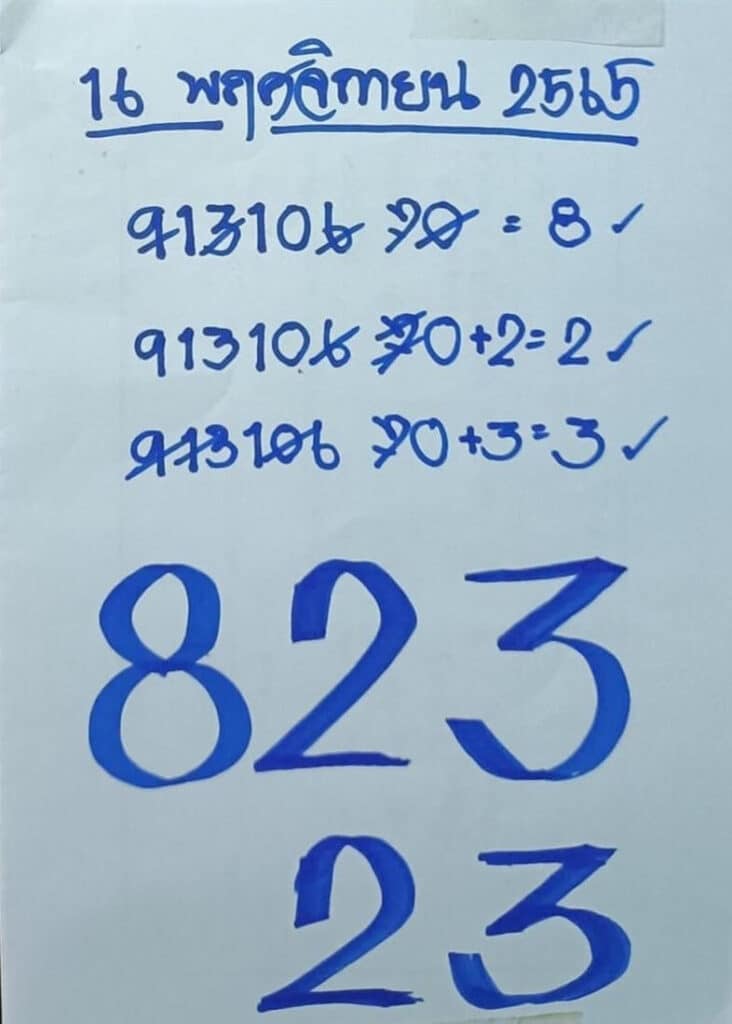 16 พฤศจิกายน 2565
913106 70 = 8 ✓
913106 70+2=2 ✓
913106 70+3=3 ✓
823
23